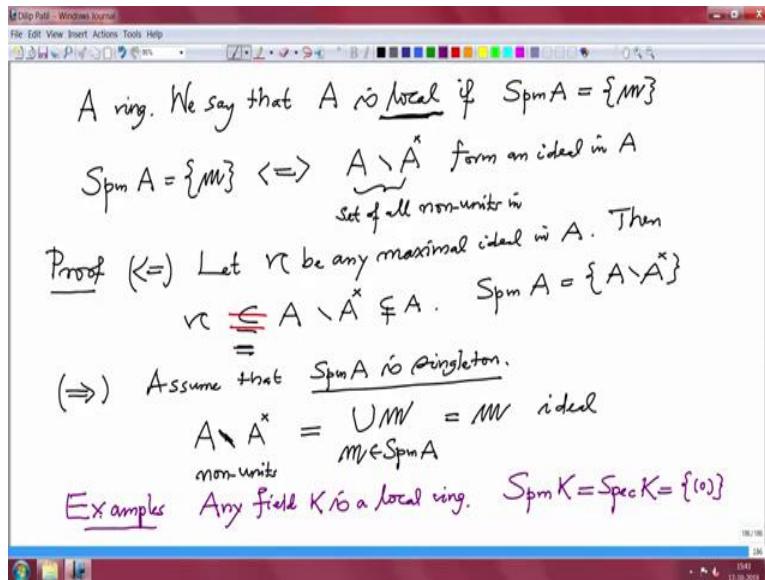 Dilip Patil - Windows Journal
File Edit View Insert Actions Tools Help
A ring. We say that A is local if Spm A = {𝔪}
Spm A = {𝔪} <=> A \ A^× form an ideal in A
Set of all non-units in
Proof (<=) Let 𝔫 be any maximal ideal in A. Then
𝔫 ⊆ A \ A^× ⊊ A. Spm A = {A \ A^×}
=
(=>) Assume that Spm A is singleton.
A \ A^× = ∪ 𝔪 = 𝔪 ideal
non-units 𝔪 ∈ Spm A
Examples Any field K is a local ring. Spm K = Spec K = {(0)}
186/186
186
15:41